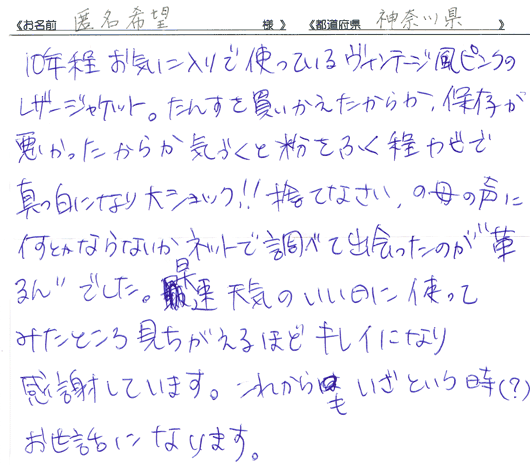 《お名前 匿名希望 様 》 《都道府県 神奈川県 》
10年程お気に入りで使っているヴィンテージ風ピンクの
レザージャケット。たんすを買いかえたからか、保存が
悪かったからか気づくと粉をふく程カビで
真っ白になり大ショック!!捨てなさい、の母の声に
何とかならないかネットで調べて出会ったのが"革
るん"でした。最速天気のいい日に使って
みたところ見ちがえるほどキレイになり
感謝しています。これからも いざという時(?)
お世話になります。